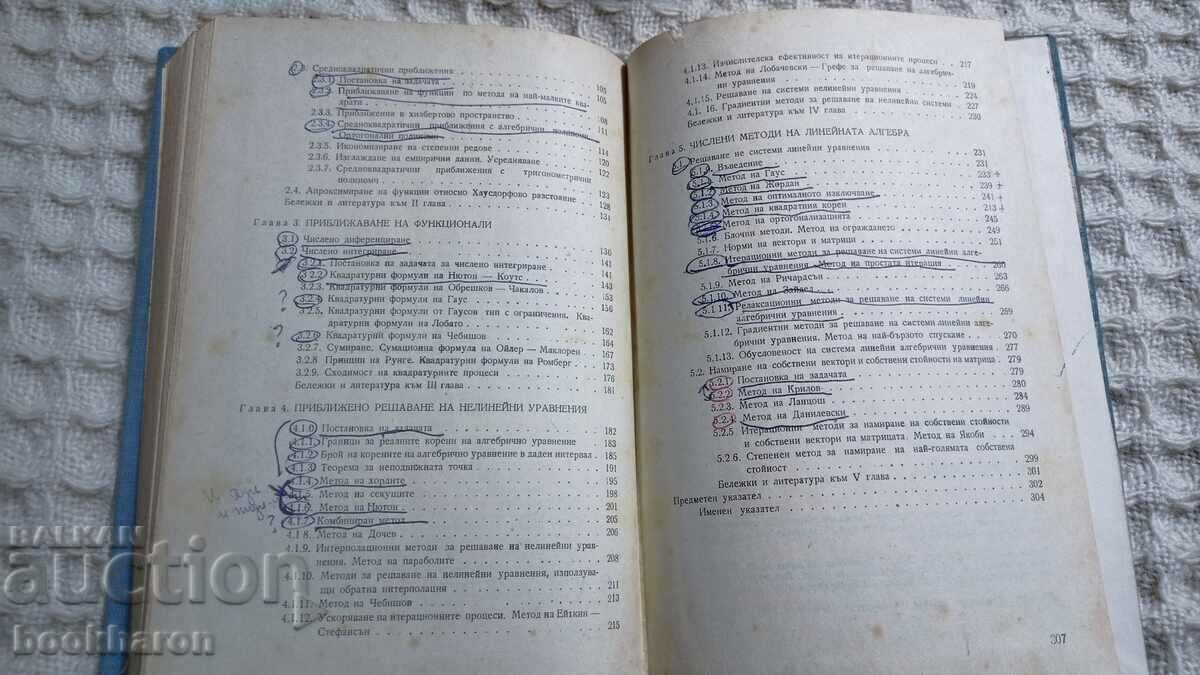 2.3. Средноквадратични приближения
2.3.1. Постановка на задачата 105
2.3.2. Приближаване на функции по метода на най-малките квад-
рати 105
2.3.3. Приближения в хилбертово пространство 108
2.3.4. Средноквадратични приближения с алгебрични полиноми.
Ортогонални полиноми 111
2.3.5. Икономизиране на степенни редове 114
2.3.6. Изглаждане на емпирични данни. Усредняване 120
2.3.7. Средноквадратични приближения с тригонометрични
полиноми 122
2.4. Апроксимиране на функции относно Хаусдорфово разстояние 123
Бележки и литература към II глава 131
Глава 3. ПРИБЛИЖАВАНЕ НА ФУНКЦИОНАЛИ
3.1. Числено диференциране 136
3.2. Числено интегриране 141
3.2.1. Постановка на задачата за числено интегриране 141
3.2.2. Квадратурни формули на Нютон — Коутс 143
3.2.3. Квадратурни формули на Обрешков — Чакалов
? 3.2.4. Квадратурни формули на Гаус 153
3.2.5. Квадратурни формули от Гаусов тип с ограничения. Квад- 156
ратурни формули на Лобато 162
? 3.2.6. Квадратурни формули на Чебишов 164
3.2.7. Сумиране. Сумационна формула на Ойлер — Маклорен 167
3.2.8 Принцип на Рунге. Квадратурни формули на Ромберг 173
3.2.9. Сходимост на квадратурните процеси 176
Бележки и литература към III глава 181
Глава 4. ПРИБЛИЖЕНО РЕШАВАНЕ НА НЕЛИНЕЙНИ УРАВНЕНИЯ
4.1.0. Постановка на задачата 182
4.1.1. Граници за реалните корени на алгебрично уравнение 183
4.1.2. Брой на корените на алгебрично уравнение в даден интервал 185
4.1.3. Теорема за неподвижната точка 191
4.1.4. Метод на хордите 195
4.1.5. Метод на секущите 198
4.1.6. Метод на Нютон 201
? 4.1.7. Комбиниран метод 205
4.1 8. Метод на Дочев 206
4.1.9. Интерполационни методи за решаване на нелинейни урав-
нения. Метод на параболите 208
4.1.10. Методи за решаване на нелинейни уравнения, използува-
щи обратна интерполация 211
4.1.11. Метод на Чебишов 213
4.1.12. Ускоряване на итерационните процеси. Метод на Ейткин —
Стефансън 215
4.1.13. Изчислителска ефективност на итерационните процеси 217
4.1.14. Метод на Лобачевски — Грефе за решаване на алгебрич-
ни уравнения 219
4.1.15. Решаване на системи нелинейни уравнения 224
4.1. 16. Градиентни методи за решаване на нелинейни системи 227
Бележки и литература към IV глава 230
Глава 5. ЧИСЛЕНИ МЕТОДИ НА ЛИНЕЙНАТА АЛГЕБРА
5.1. Решаване не системи линейни уравнения 231
Въведение 231
Метод на Гаус 233 +
5.1.2. Метод на Жордан 239 +
5.1.3. Метод на оптималното изключване 241 +
5.1.4. Метод на квадратния корен 213 +
Метод на ортогонализацията 245
5.1.6. Блочни методи. Метод на ограждането 249
5.1.7. Норми на вектори и матрици 251
5.1.8. Итерационни методи за решаване на системи линейни алге-
брични уравнения. Метод на простата итерация 260
5.1.9. Метод на Ричардсън 265
5.1.10. Метод на Зайдел 266
5.1.11. Релаксационни методи за решаване на системи линейни
алгебрични уравнения 269
5.1.12. Градиентни методи за решаване на системи линейни алге-
брични уравнения. Метод на най-бързото спускане 270
5.1.13. Обусловеност на система линейни алгебрични уравнения 277
5.2. Намиране на собствени вектори и собствени стойности на матрица 279
5.2.1. Постановка на задачата 279
5.2.2. Метод на Крилов 280
5.2.3. Метод на Ланцош 284
5.2.4. Метод на Данилевски 289
5.2.5 Итерационни методи за намиране на собствени стойности
и собствени вектори на матрицата. Метод на Якоби 294
5.2.6. Степенен метод за намиране на най-голямата собствена
стойност 299
Бележки и литература към V глава 301
Предметен указател 302
Именен указател 304
307
БАЛКАН
auction
bookharon